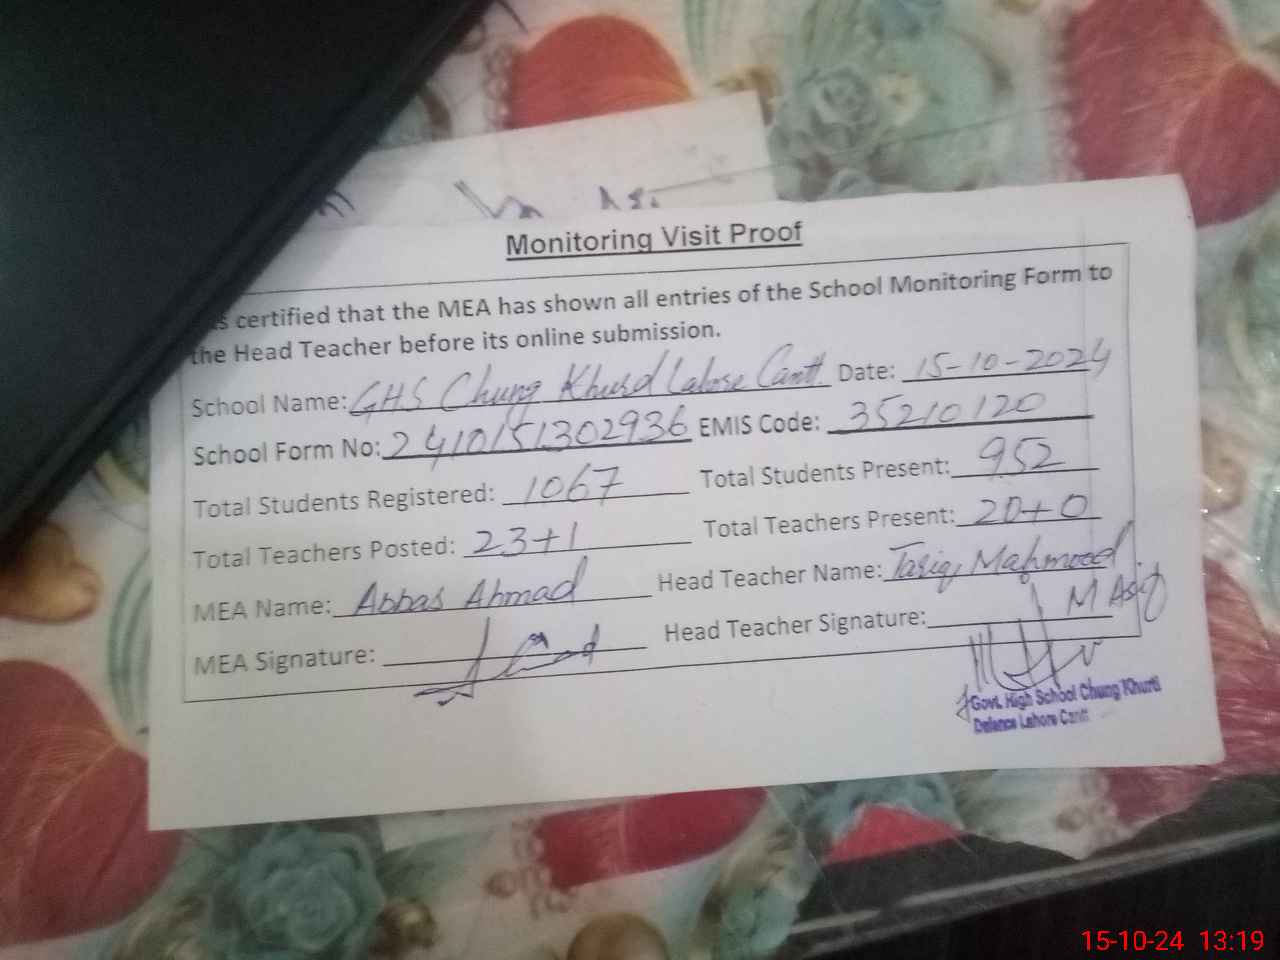 Monitoring Visit Proof
is certified that the MEA has shown all entries of the School Monitoring Form to
the Head Teacher before its online submission.
School Name: GHS Chung Khurd Lahore Cantt. Date: 15-10-2024
School Form No: 2410151302936 EMIS Code: 35210120
Total Students Registered: 1067 Total Students Present: 952
Total Teachers Posted: 23+1 Total Teachers Present: 20+0
MEA Name: Abbas Ahmad Head Teacher Name: Tariq Mahmood
MEA Signature: Head Teacher Signature: M Asif
Govt. High School Chung Khurd
Defence Lahore Cantt
15-10-24 13:19